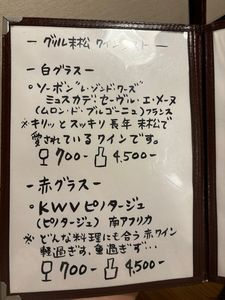 ー グリル末松 ワインリスト ー
ー 白グラス ー
○ ソーボン"レ・ゾンド・ワーズ
ミュスカデ・セーヴル・エ・メーヌ
(ムロン・ド・ブルゴーニュ) フランス
※ キリッとスッキリ 長年 末松で
愛されているワインです。
700- 4,500-
ー 赤グラス ー
○ KWV ピノタージュ
(ピノタージュ) 南アフリカ
※ どんな料理にも合う 赤ワイン
軽過ぎず、重過ぎず…
700- 4,500-